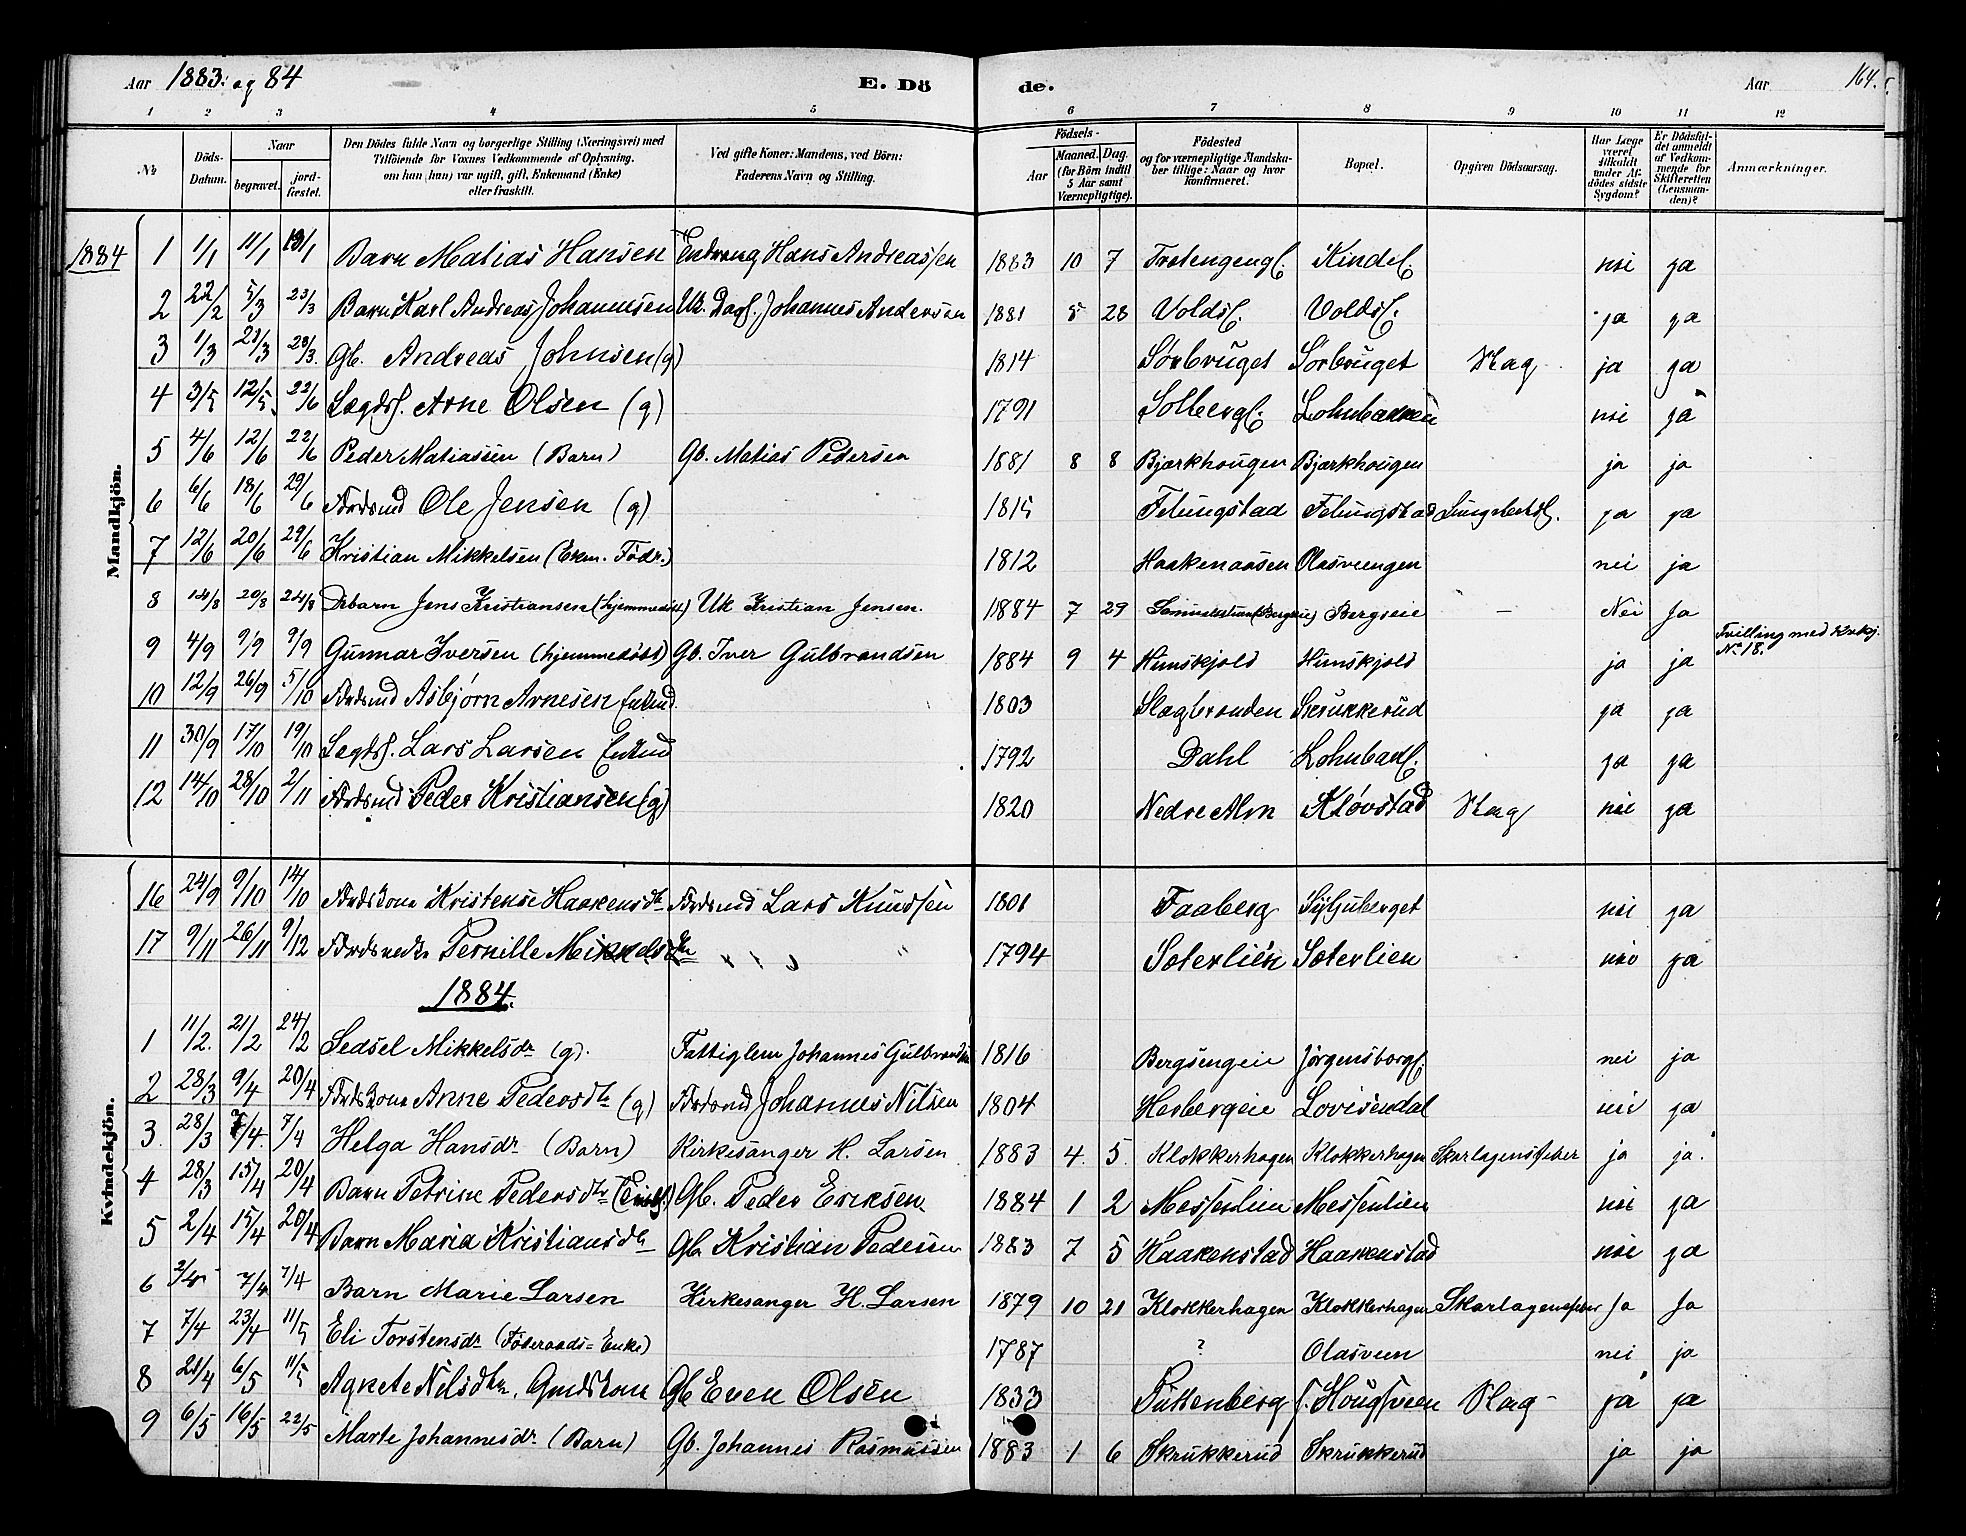 Aar 1883. og 84 E. Dö de. Aar 164.
1 2 3 4 5 6 7 8 9 10 11 12
No Döds-Datum. Naar begravet. jord-fæstet. Den Dödes fulde Navn og borgerlige Stilling (Næringsvei) med Tilföiende for Voxnes Vedkommende af Oplysning, om han (hun) var ugift, gift, Enkemand (Enke) eller fraskilt. Ved gifte Koner: Mandens, ved Börn: Faderens Navn og Stilling. Födsels- Aar Maaned. Dag. (for Börn indtil 5 Aar samt Værnepligtige). Födested og for værnepligtige Mandskaber tillige: Naar og hvor konfirmeret. Bopæl. Opgiven Dödsaarsag. Har Læge været tilkaldt under Afdödes sidste Sygdom? Er Dödsfaldet anmeldt af Vedkommende for Skifteretten (Lensmanden)? Anmærkninger.
Mandkjön.
1884 1 1/1 11/1 13/1 Barn Matias Hansen Hans Andreassen 1883 10 7 nei ja
2 22/2 5/3 23/3 Barn Karl Andreas Johannesen Johannes Andersen 1881 5 28 Volds. Volds. ja ja
3 1/3 23/3 23/3. Gb. Andreas Johnsen (g) 1814 Sörbruget Sörbruget Slag ja ja
4 3/5 12/5 22/6 Lægds. Arne Olsen (g) 1791 Solbergs. nei ja
5 4/6 12/6 22/6 Peder Matiassen (Barn) Gb. Matias Pedersen 1881 8 8 Bjærkhougen Bjærkhougen ja ja
6 6/6 18/6 29/6 Ole Jensen (g) 1815 ja ja
7 12/6 20/6 29/6 Kristian Mikkelsen (Ekm. Födr.) 1812 Haakenaasen Olasveengen nei ja
8 14/8 20/8 24/8 Jens Kristiansen (hjemmedöbt) Kristian Jensen. 1884 7 29 Bergseie – Nei Ja
9 4/9 9/9 9/9 Gunnar Iversen (hjemmedöbt) Gb. Iver Gulbrandsen 1884 9 4 Himskjold Himskjold ja ja Tvilling med Kvkj. No 18.
10 12/9 26/9 5/10 Asbjørn Arnesen Enkmd. 1803 Slagbranden Skrukkerud ja ja
11 30/9 17/10 19/10 Lægds. Lars Larsen Enkmd 1792 Dahl ja ja
12 14/10 28/10 2/11 Peder Kristiansen (g) 1820 Nedre Alm Kløvstad Slag nei ja
Kvindekjön.
16 24/9 9/10 14/10 Kristense Haakensdtr Lars Knudsen 1801 Faaberg nei ja
17 9/11 26/11 9/12 Pernille Mikkelsdtr " 1794 Sæterlien Sæterlien nei ja
1884.
1 11/2. 21/2 24/2 Sedsel Mikkelsdr (g). Fattiglem Johannes Gulbrandsen 1816 Bergsengeie Jörgensborgs. nei ja
2 28/3 9/4 20/4 Anne Pedersdtr (g) Johannes Nilsen 1804 Lovisendal nei ja
3. 28/3 7/4. 7/4 Helga Hansdr (Barn) Kirkesanger H. Larsen 1883 4. 5. Klokkerhagen Klokkerhagen Skarlagensfeber ja ja.
4 28/3 15/4 20/4 Barn Petrine Pedersdtr Gb. Peder Eriksen. 1884 1 2 Messenlien Messenlien nei ja
5 2/4 15/4 20/4 Barn Maria Kristiansdtr Gb. Kristian Pedersen 1883 7 5 Haakenstad Haakenstad nei ja
6 7/4 7/4 Barn Marie Larsen Kirkesanger H. Larsen 1879 10 21 Klokkerhagen Klokkerhagen Skarlagensfeber Ja Ja
7 7/4 23/4 11/5 Eli Torstensdr (Föderaads-Enke) 1787 ? Olasveen nei ja
8 21/4 6/5 11/5 Agnete Nilsdtr. Gmdskone Gb Even Olsen 1833 Tuttenberg Slag – ja ja
9 6/5 16/5 22/5 Marte Johannesdr. (Barn) Gb. Johannes Rasmussen 1883 1 6 Skrukkerud Skrukkerud ja ja